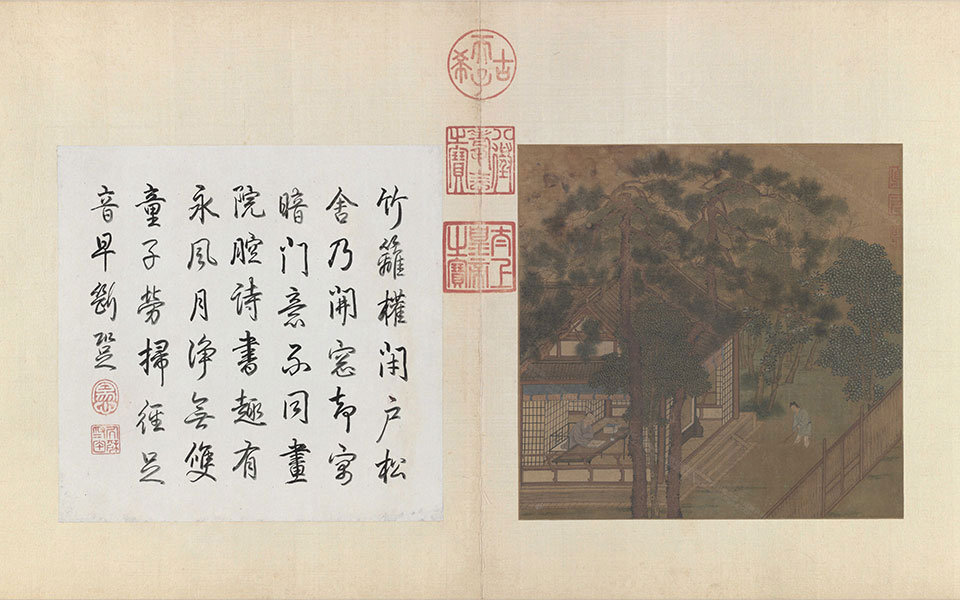 竹籬權閉戶松
舍乃開窓却寓
暗門意不同畫
院腔詩書趣有
永風月淨無雙
童子勞掃徑足
音早跫
古希天子
八徵耄念之寶
太上皇帝之寶